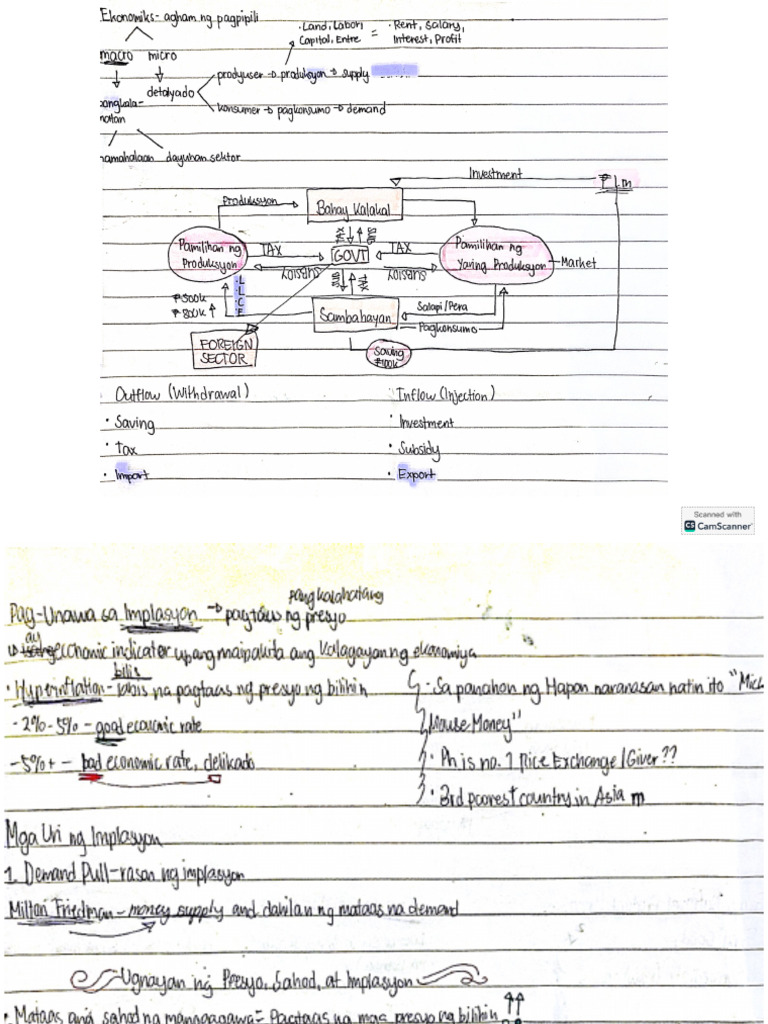 Ekonomiks - agham ng pagpipili
· Land, Labor, Capital, Entre = · Rent, Salary, Interest, Profit
macro micro
produyser → produksyon → supply
detalyado
konsumer → pagkonsumo → demand
dayuhan sektor
Investment
₱1 m
Produksyon
Bahay Kalakal
Pamilihan ng Produksyon
TAX
GOVT
TAX
Pamilihan ng Yaring Produksyon
Market
SUBSIDY
SUBSIDY
₱500k
₱800k ↑
L
L
C
E
Sambahayan
Salapi/Pera
Pagkonsumo
FOREIGN SECTOR
Saving ₱100k
Outflow (Withdrawal) Inflow (Injection)
· Saving · Investment
· Tax · Subsidy
· Import · Export
Scanned with
CS CamScanner
pangkalahatang
Pag-Unawa sa Implasyon → pagtaas ng presyo
ay
economic indicator upang maipakita ang kalagayan ng ekonomiya
bilis
· Hyperinflation - labis na pagtaas ng presyo ng bilihin
- Sa panahon ng Hapon naranasan natin ito "Mick
Mouse Money"
- 2% - 5% - good economic rate
· Ph is no. 1 Rice Exchange/Giver??
- 5% + - bad economic rate, delikado
· 3rd poorest country in Asia m
Mga Uri ng Implasyon
1. Demand Pull - rason ng implasyon
Milton Friedman - money supply and dahilan ng mataas na demand
Ugnayan ng Presyo, Sahod, at Implasyon
· Mataas ang sahod ng manggagawa = Pagtaas ng mga presyo ng bilihin ↑↑